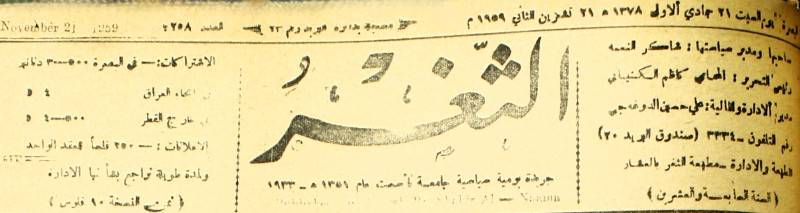 لبصرة يوم السبت ٢١ جمادي الاولى ١٣٧٨ هـ ٢١ تشرين الثاني ١٩٥٩ م
مسجلة بدائرة البريد رقم ٢٣
العدد ٣٢٥٨
November 21 1959
صاحبها ومدير سياستها : شاكر النعمه
رئيس التحرير : المحامي كاظم
مدير الادارة والمالية : علي حسين
رقم التلفون - ٣٣٣٤ (صندوق البريد ٢٠)
الطبعة والادارة - مطبعة الثغر بالعشار
( السنة السابعـــة والعشرين )
الثغر
جريدة يومية سياسية جامعة تأسست عام ١٣٥١ هـ - ١٩٣٣
الاشتراكات :- في البصرة ٥٠٠-٣ دنانير
في انحاء العراق ٤ د
في خارج القطر ٥٠٠-٤ د
الاعلانات :- ٢٥٠ فلساً للعقد الواحد
ولمدة طويلة تراجع بشأنها الادارة
( ثمن النسخة ١٠ فلوس )